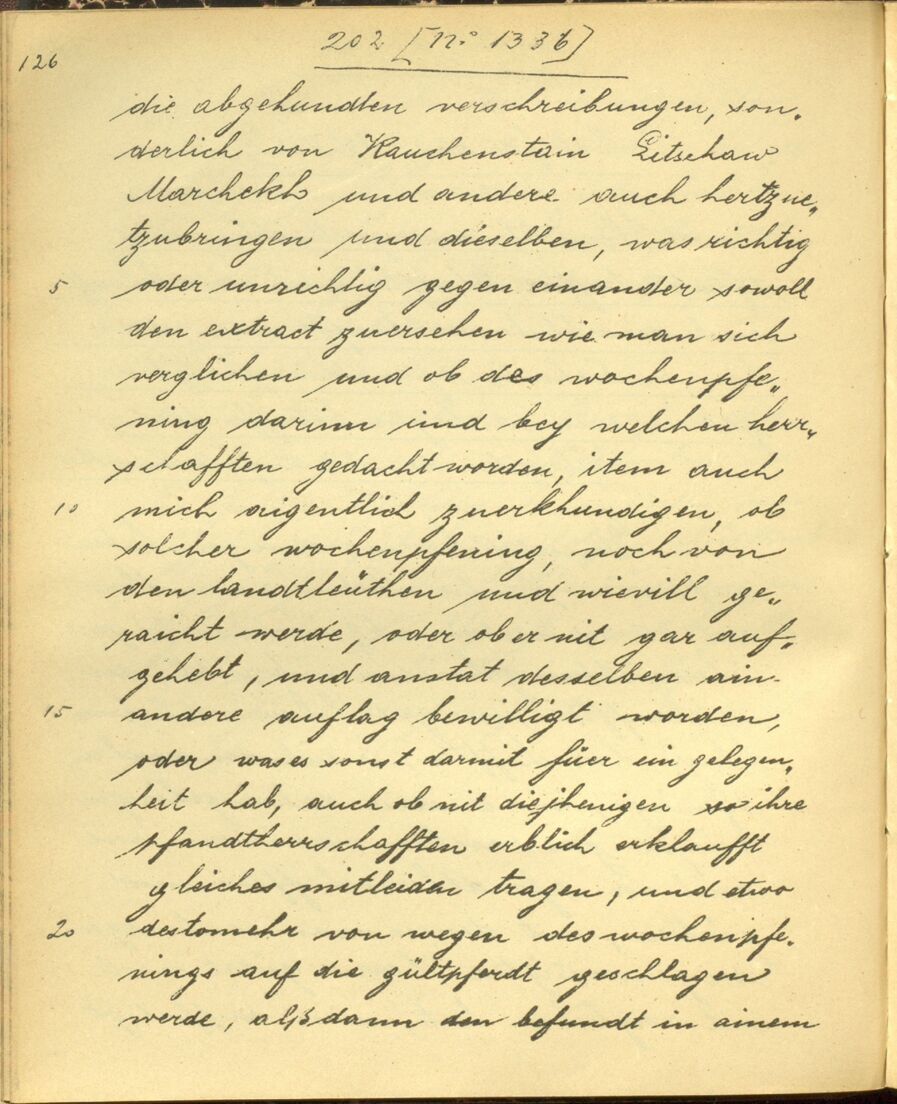 202 [N:o 1336]
126
die abgehundten verschreibungen, son„
derlich von Rauchenstain Litschaw
Marchekh und andere auch hertzue„
tzubringen und dieselben, was richtig
5 oder unrichtig gegen einander sowoll
den extract zuersehen wie man sich
verglichen und ob des wochenpfe„
ning darinn und bey welchen herr„
schafften gedacht worden, item auch
10 mich aigentlich zuerkhundigen, ob
solcher wochenpfening, noch von
den landtleüthen und wievill ge„
raicht werde, oder ob er nit gar auf„
gehebt, und anstat desselben ain
15 andere auflag bewilligt worden,
oder was es sonst darmit füer ein gelegen„
heit hab, auch ob nit diejhenigen so ihre
pfandtherrschafften erblich erkaufft
gleiches mitleiden tragen, und etwo
20 destomehr von wegen des wochenpfe„
nings auf die gültpferdt geschlagen
werde, alßdann den befundt in ainem